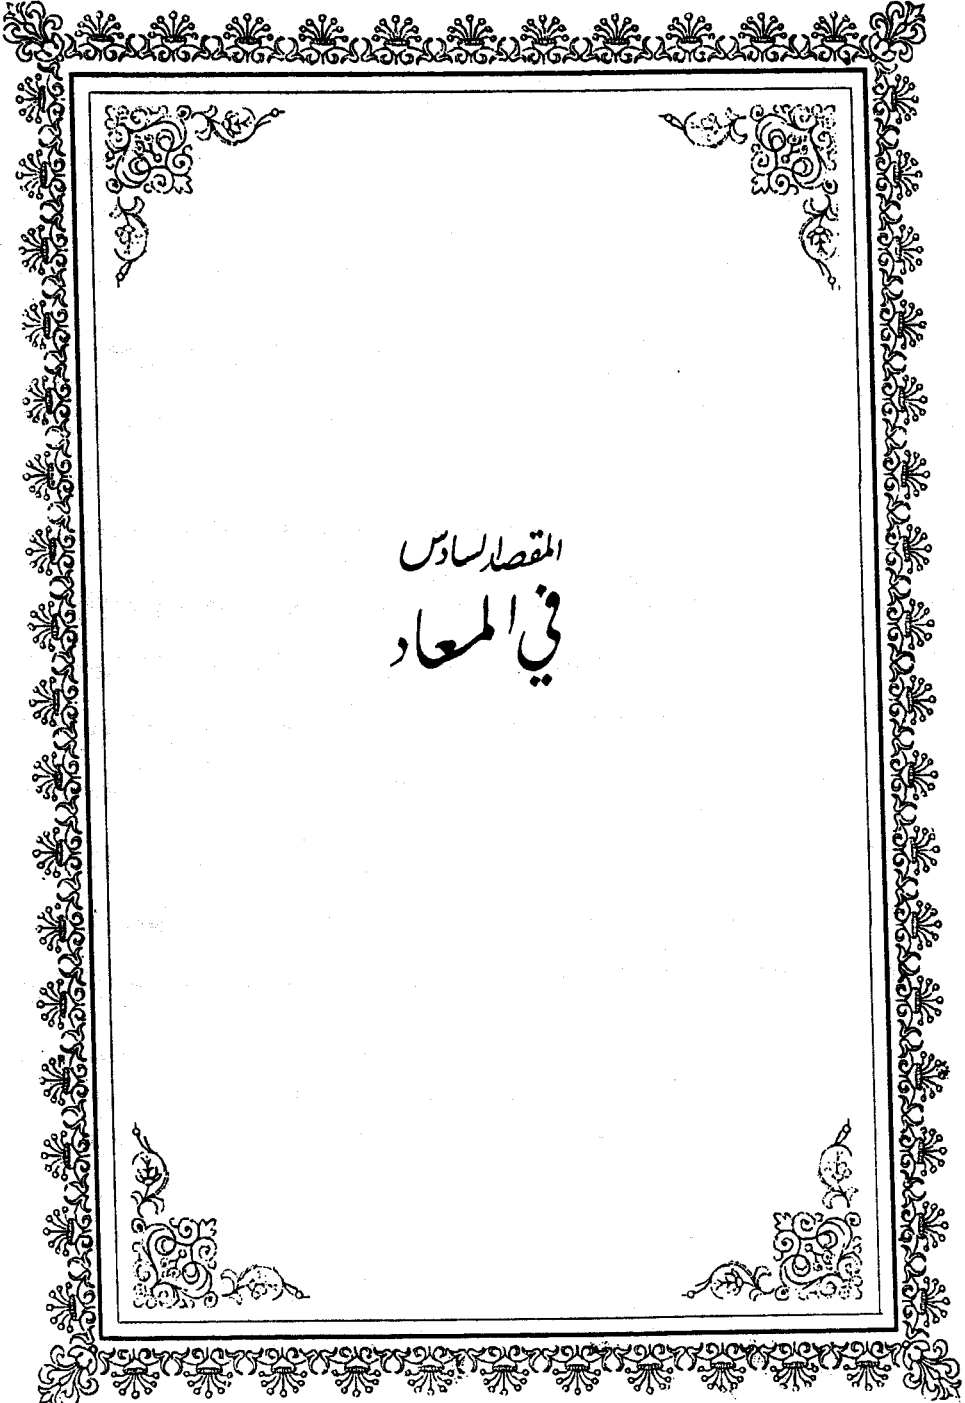 المقصد السادس
في المعاد